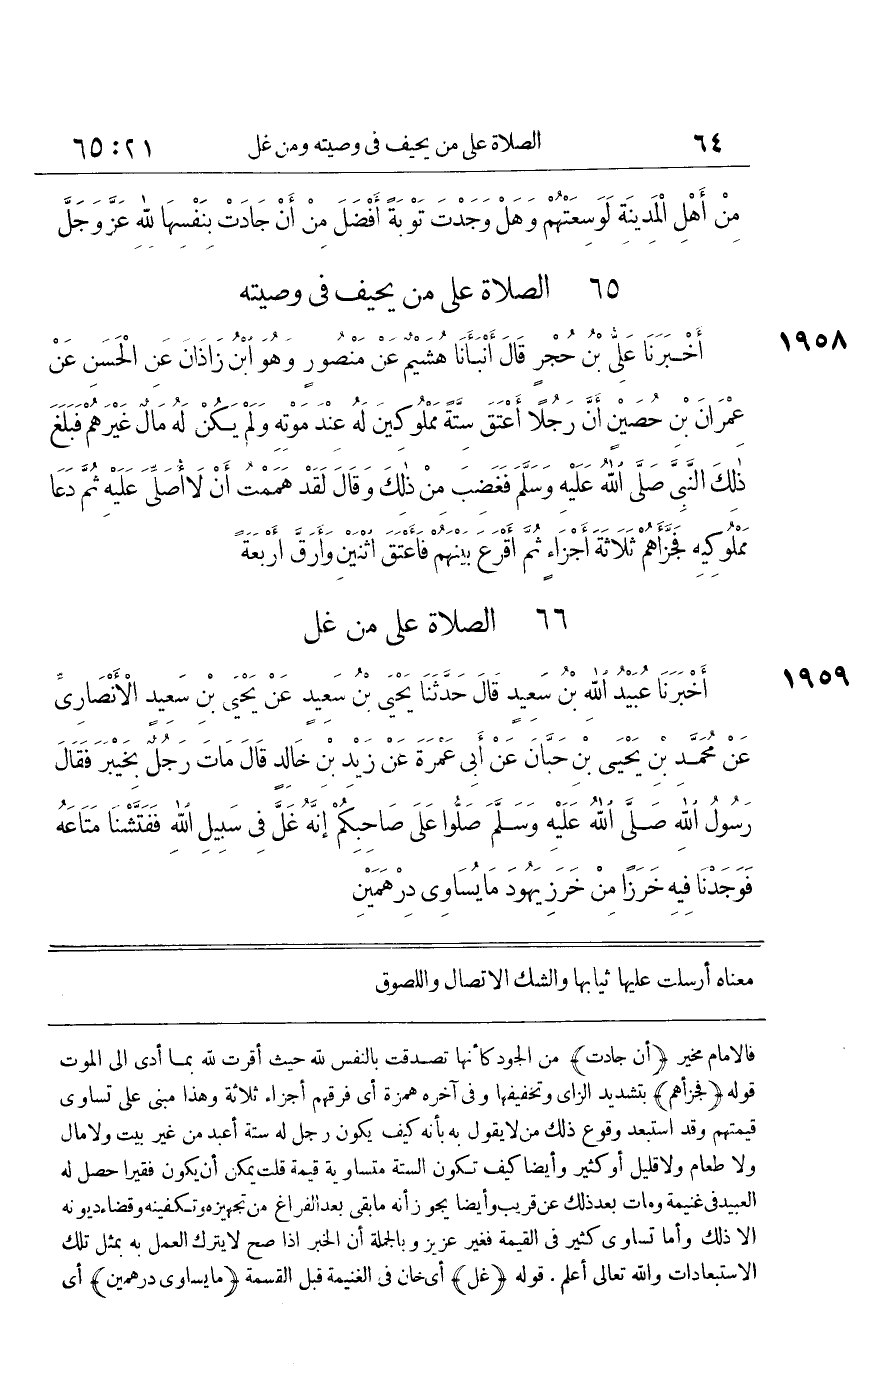 ٦٤ الصلاة على من يحيف فى وصيته ومن غل ٢١ : ٦٥
مِنْ أَهْلِ الْمَدِينَةِ لَوَسِعَتْهُمْ وَهَلْ وَجَدْتَ تَوْبَةً أَفْضَلَ مِنْ أَنْ جَادَتْ بِنَفْسِهَا لِلّٰهِ عَزَّ وَجَلَّ
٦٥ الصلاة على من يحيف فى وصيته
١٩٥٨ أَخْبَرَنَا عَلِىُّ بْنُ حُجْرٍ قَالَ أَنْبَأَنَا هُشَيْمٌ عَنْ مَنْصُورٍ وَهُوَ ابْنُ زَاذَانَ عَنِ الْحَسَنِ عَنْ
عِمْرَانَ بْنِ حُصَيْنٍ أَنَّ رَجُلًا أَعْتَقَ سِتَّةً مَمْلُوكِينَ لَهُ عِنْدَ مَوْتِهِ وَلَمْ يَكُنْ لَهُ مَالٌ غَيْرَهُمْ فَبَلَغَ
ذٰلِكَ النَّبِىَّ صَلَّى اللّٰهُ عَلَيْهِ وَسَلَّمَ فَغَضِبَ مِنْ ذٰلِكَ وَقَالَ لَقَدْ هَمَمْتُ أَنْ لَا أُصَلِّىَ عَلَيْهِ ثُمَّ دَعَا
مَمْلُوكِيهِ فَجَزَّأَهُمْ ثَلَاثَةَ أَجْزَاءٍ ثُمَّ أَقْرَعَ بَيْنَهُمْ فَأَعْتَقَ اثْنَيْنِ وَأَرَقَّ أَرْبَعَةً
٦٦ الصلاة على من غل
١٩٥٩ أَخْبَرَنَا عُبَيْدُ اللّٰهِ بْنُ سَعِيدٍ قَالَ حَدَّثَنَا يَحْيَى بْنُ سَعِيدٍ عَنْ يَحْيَى بْنِ سَعِيدٍ الْأَنْصَارِىِّ
عَنْ مُحَمَّدِ بْنِ يَحْيَى بْنِ حَبَّانَ عَنْ أَبِى عَمْرَةَ عَنْ زَيْدِ بْنِ خَالِدٍ قَالَ مَاتَ رَجُلٌ بِخَيْبَرَ فَقَالَ
رَسُولُ اللّٰهِ صَلَّى اللّٰهُ عَلَيْهِ وَسَلَّمَ صَلُّوا عَلَى صَاحِبِكُمْ إِنَّهُ غَلَّ فِى سَبِيلِ اللّٰهِ فَفَتَّشْنَا مَتَاعَهُ
فَوَجَدْنَا فِيهِ خَرَزًا مِنْ خَرَزِ يَهُودَ مَا يُسَاوِى دِرْهَمَيْنِ
معناه أرسلت عليها ثيابها والشك الاتصال واللصوق
فالامام مخير ﴿أن جادت﴾ من الجود كأنها تصدقت بالنفس لله حيث أقرت لله بما أدى الى الموت
قوله ﴿فجزأهم﴾ بتشديد الزاى وتخفيفها وفى آخره همزة أى فرقهم أجزاء ثلاثة وهذا مبنى على تساوى
قيمتهم وقد استبعد وقوع ذلك من لا يقول به بأنه كيف يكون رجل له ستة أعبد من غير بيت ولامال
ولا طعام ولاقليل أوكثير وأيضا كيف تكون الستة متساوية قيمة قلت يمكن أن يكون فقيرا حصل له
العبيد فى غنيمة ومات بعد ذلك عن قريب وأيضا يجوز أنه مابقى بعد الفراغ من تجهيزه وتكفينه وقضاء ديونه
الا ذلك وأما تساوى كثير فى القيمة فغير عزيز وبالجملة أن الخبر اذا صح لايترك العمل به بمثل تلك
الاستبعادات والله تعالى أعلم . قوله ﴿غل﴾ أى خان فى الغنيمة قبل القسمة ﴿مايساوى درهمين﴾ أى